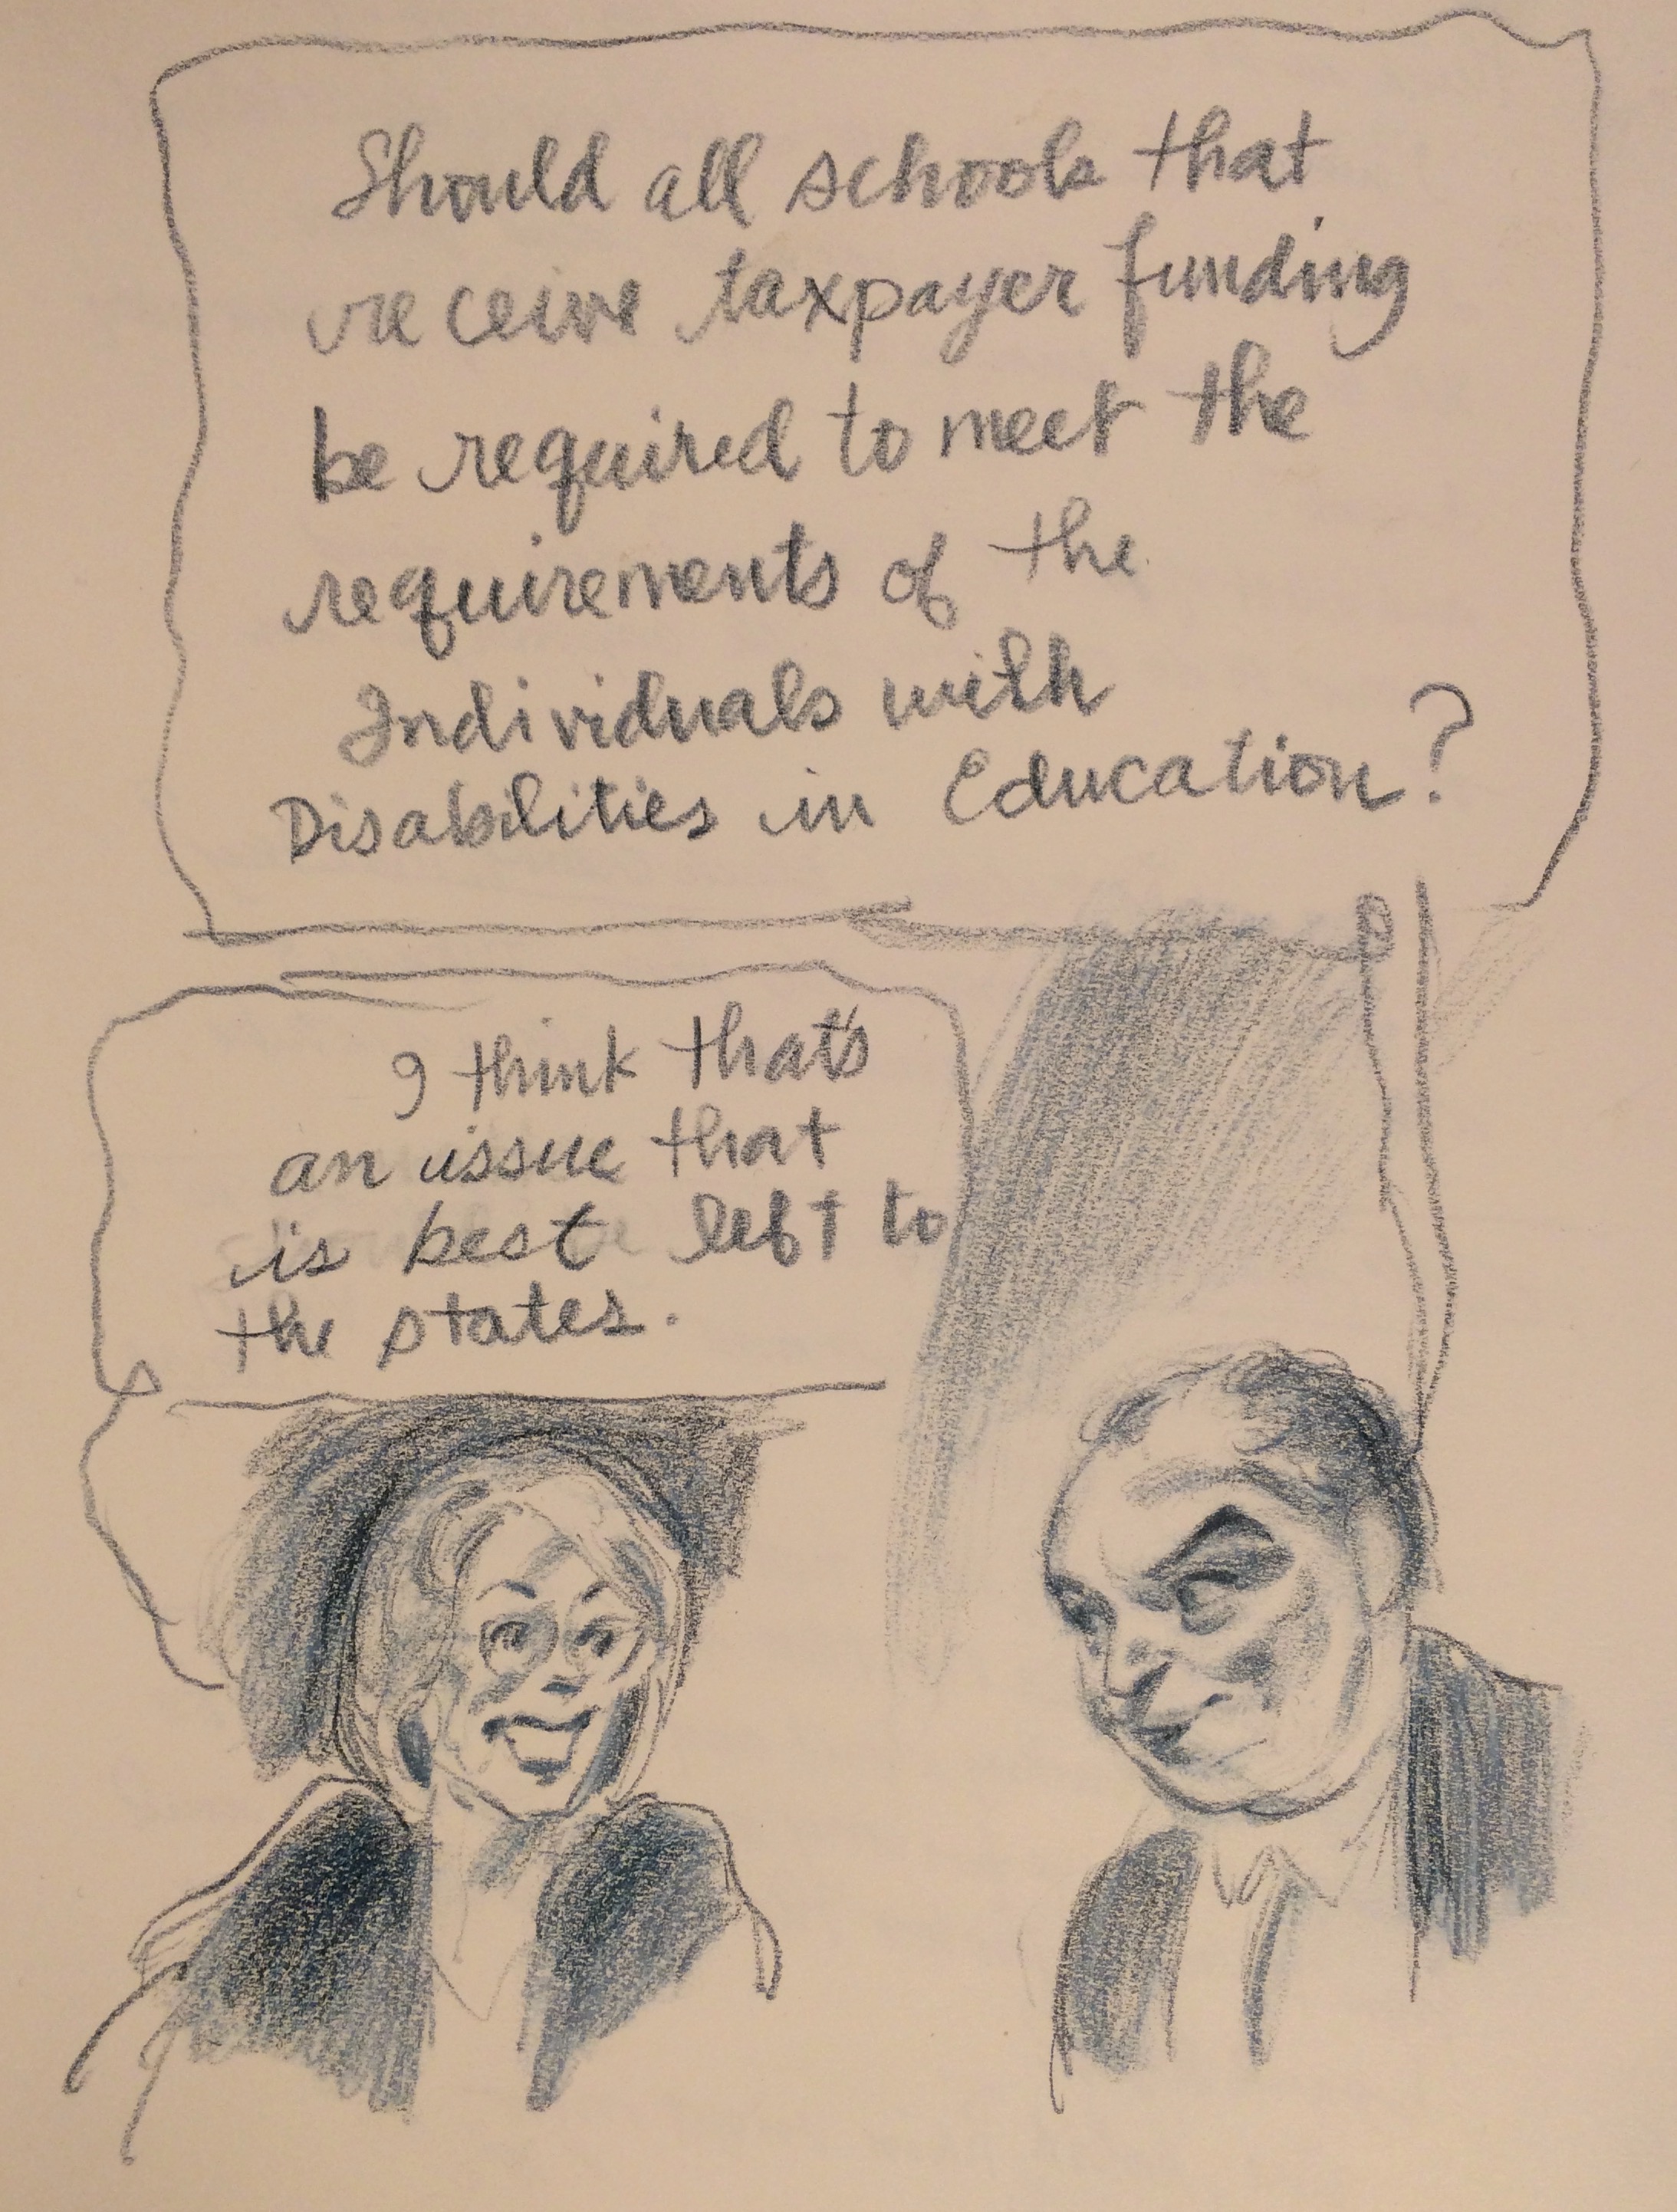 Should all schools that
receive taxpayer funding
be required to meet the
requirements of the
Individuals with
Disabilities in Education?
I think that's
an issue that
is best left to
the states.